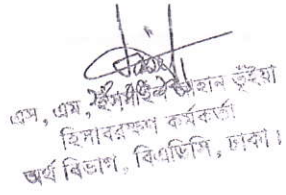 এস, এম, ইসমাইল জাহান ভূঁইয়া
হিসাবরক্ষণ কর্মকর্তা
অর্থ বিভাগ, বিএডিসি, ঢাকা।